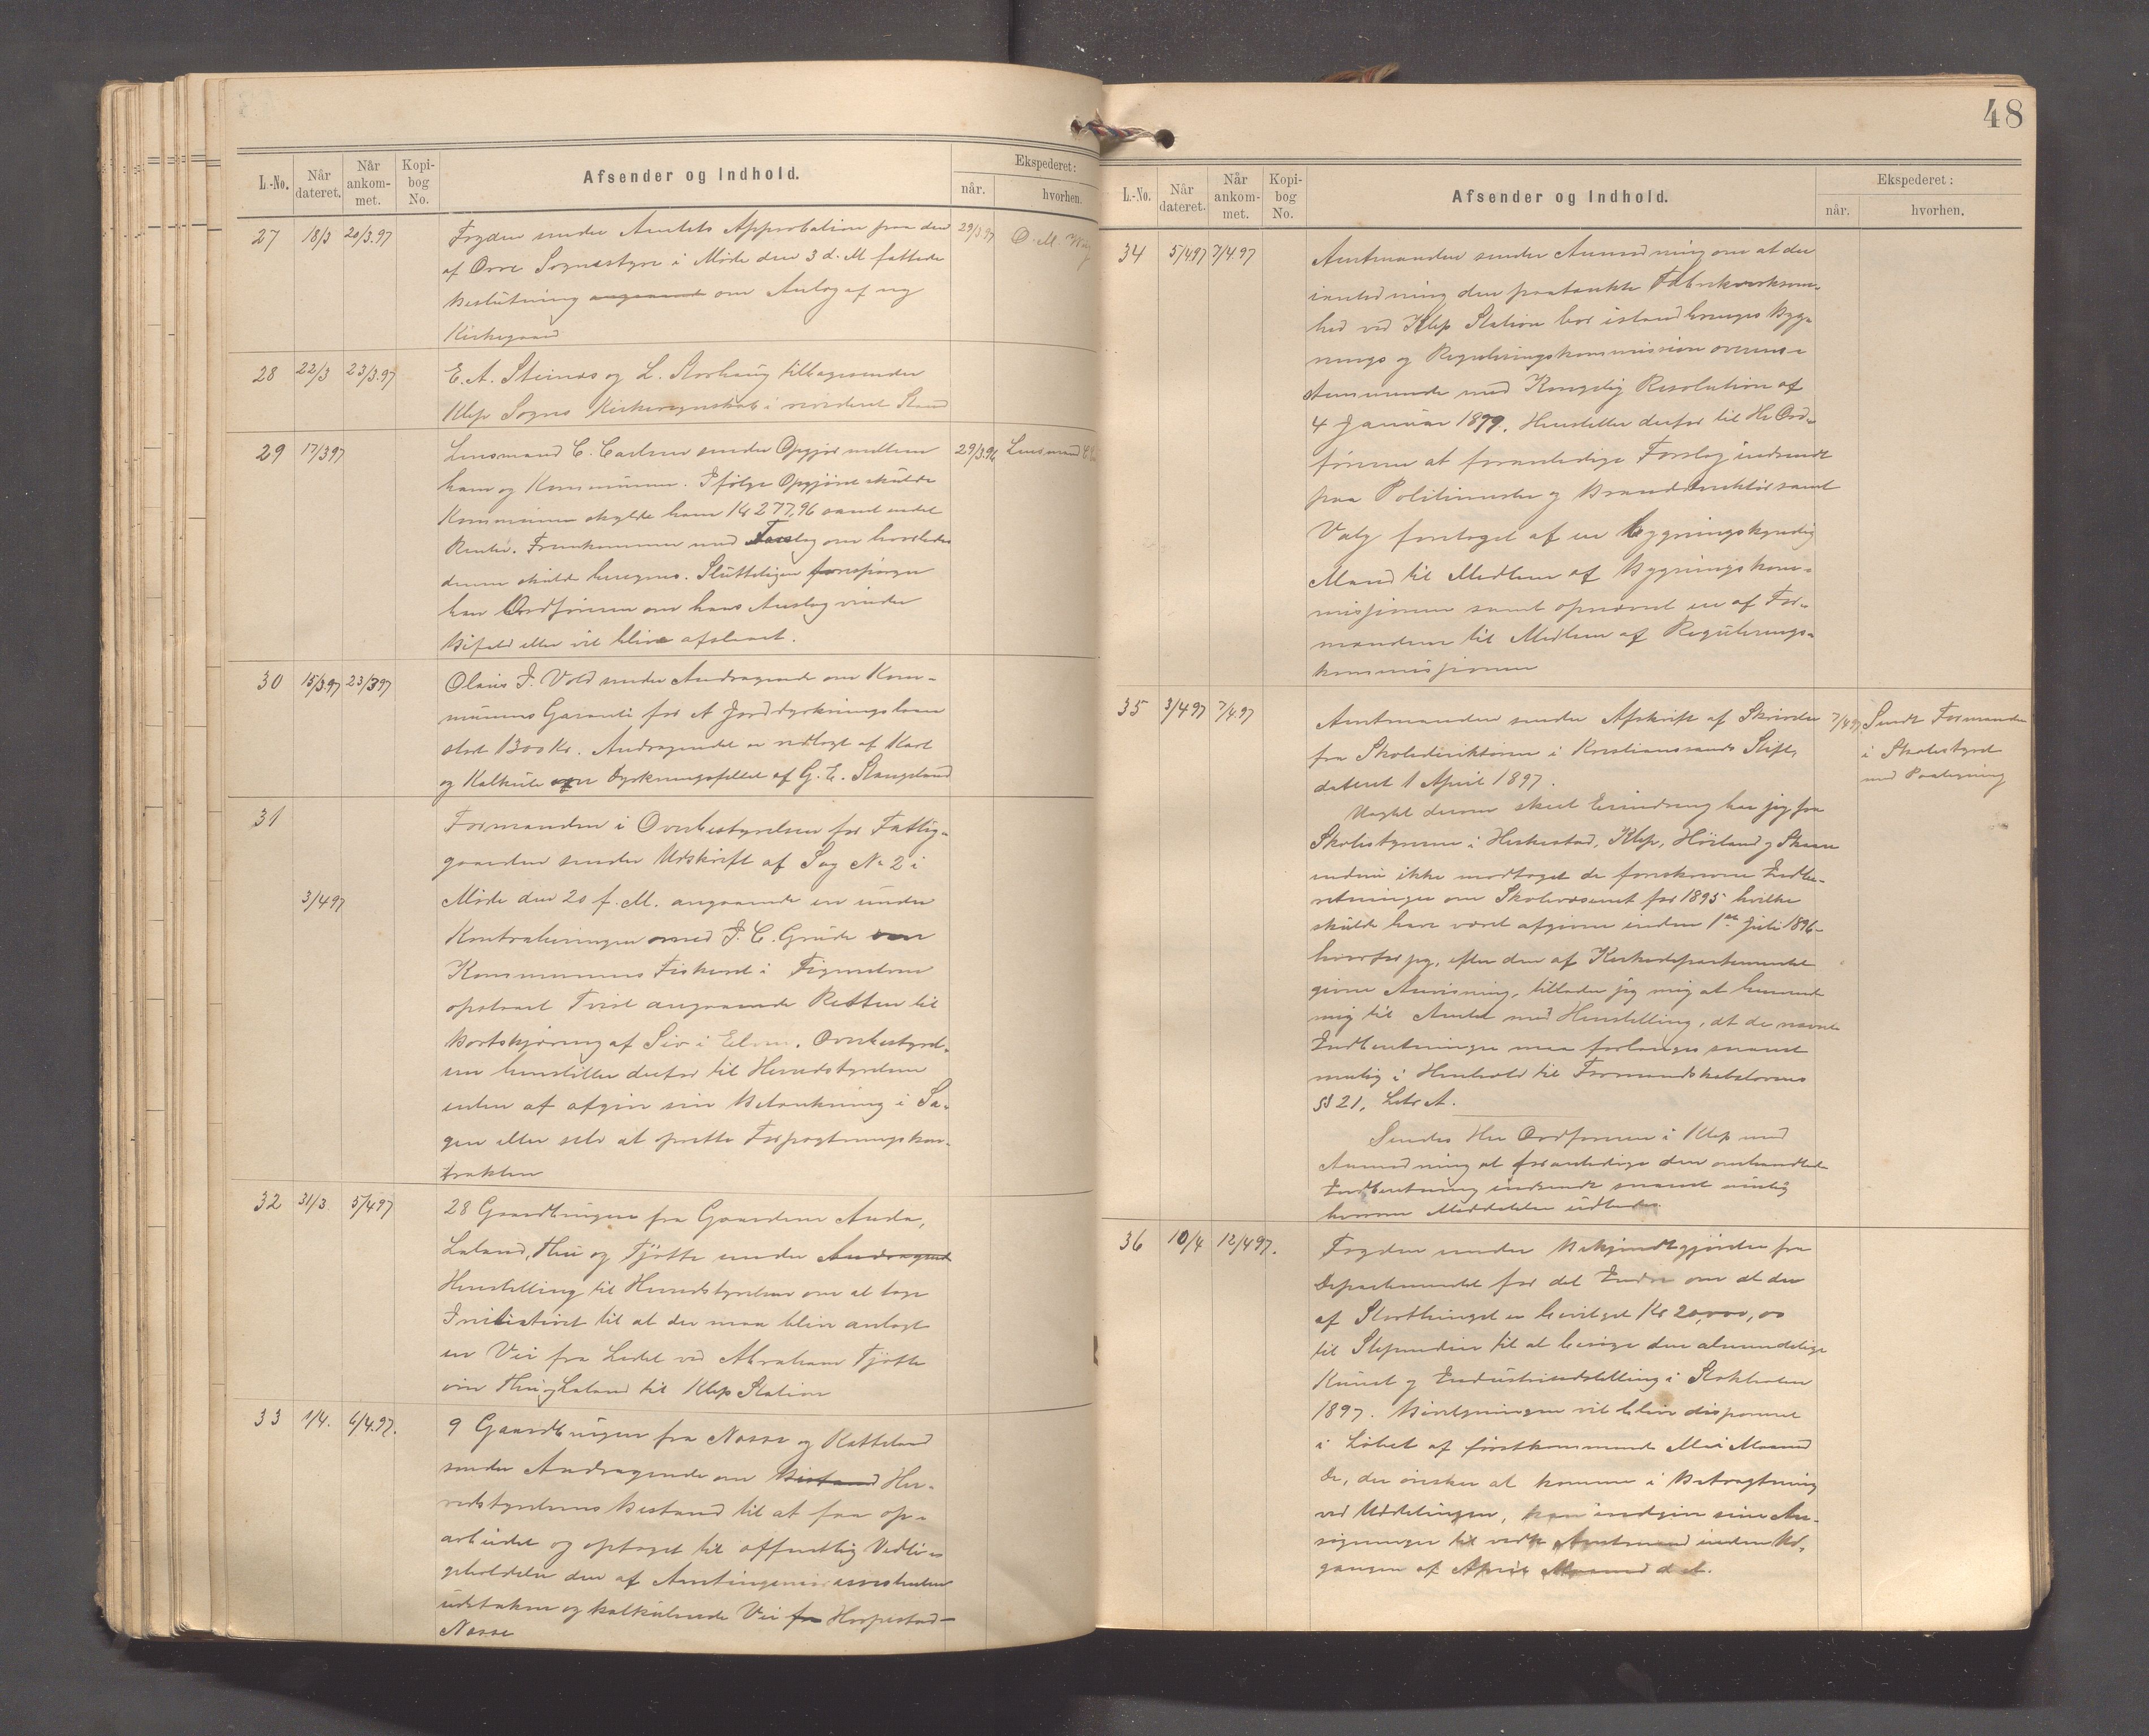 L.-No.
Når dateret.
Når ankom- met.
Kopi- bog No.
Afsender og Indhold.
Ekspederet:
når.
hvorhen.
27 18/3 20/3.97
Fogden sender Amtets Approbation paa den 29/3.97 O. M.
af Orre Sognestyre i Møde den 3 d. M fattede
Beslutning angaaende om Anlæg af ny
Kirkegaard
28 22/3 23/3.97
E. A. Steinnes og L. Storhaug tilbagesender
Klep Sogns Kirkeregnskab i revideret Stand
29 17/3 97
Lensmand C. Carlsen sender Opgjør mellem 29/3.96 Lensmand C
ham og Kommunen. Ifølge Opgjøret skulde
Kommunen skylde ham Kr 277,96 samt endel
Renter. Fremkommer med Forslag om hvorledes
denne skulde beregnes. Slutteligen forespørger
han Ordføreren om hans Anslag vinder
Bifald eller vil blive afslaaet.
30 15/3.97 23/3 97
Olaus J. Vold sender Andragende om Kom-
munens Garanti for et Jorddyrkningslaan
stort 1300 Kr. Andragendet er vedlagt af Kart
og Kalkule over Dyrkningsfeltet af G. E. Stangeland
31
Formanden i Overbestyrelsen for Fattig-
gaarden sender Udskrift af Sag No 2 i
3/4 97
Møde den 20 f. M. angaaende en under
Kontraheringen med J. C. Grude om
Kommunens Fiskeret i Figuelven
opstaaet Tvist angaaende Retten til
Bortskjæring af Siv i Elven. Overbestyrel-
sen henstiller derfor til Herredsstyrelsen
enten at afgive sin Betænkning i Sa-
gen eller selv at oprette Forpagtningskon-
trakten
32 31/3. 5/4 97
28 Gaardbrugere fra Gaardene Anda,
Laland, Thu og Tjøtta sender Andragende
Henstilling til Herredsstyrelsen om at tage
Initiativet til at der maa blive anlagt
en Vei fra Ledet ved Abraham Tjøtta
over Thu og Laland til Klep Station
33 1/4. 6/4.97.
9 Gaardbrugere fra Næsse og Katteland
sender Andragende om Bistand Her-
redsstyrelsens Bistand til at faa op-
arbeidet og optaget til offentlig Vedli-
geholdelse den af Amtsingeniørassistenten
udstukne og kalkulerede Vei fra Horpestad-
Næsse
48
L.-No.
Når dateret.
Når ankom- met.
Kopi- bog No.
Afsender og Indhold.
Ekspederet:
når.
hvorhen.
34 5/4.97 7/4.97
Amtmanden sender Anmodning om at der
i anledning den paatænkte Fabrikvirksom-
hed ved Klep Station bør istandbringes Byg-
nings og Reguleringskommission overens-
stemmende med Kongelig Resolution af
4 Januar 1879. Henstiller derfor til Hr Ord-
føreren at foranledige Forslag indsendt
paa Politimester og Branddirektør samt
Valg foretaget af en bygningskyndig
Mand til Medlem af Bygningskom-
misjonen samt opnævnt en af For-
mændene til Medlem af Regulerings-
kommisjonen
35 3/4 97 7/4.97
Amtmanden sender Afskrift af Skrivelse 7/4 97 Sendt Formanden
fra Skoledirektøren i Kristianssands Stift, i Skolestyret
dateret 1 April 1897. med Paategning
Uagtet derom skeet Erindring har jeg fra
Skolestyrerne i Heskestad, Klep, Høiland og Skaare
endnu ikke modtaget de foreskrevne Indbe-
retninger om Skolevæsenet for 1895 hvilke
skulde have været afgivne inden 1ste Juli 1896-
hvorfor jeg, efter den af Kirkedepartementet
givne Anvisning, tillader jeg mig at henvende
mig til Amtet med Henstilling, at de nævnte
Indberetninger maa forlanges snarest
mulig i Henhold til Formandskabslovens
§§ 21, Litr A.
Sendes Hr Ordføreren i Klep med
Anmodning at foranledige den omhandlede
Indberetning indsendt snarest mulig
hvorom Meddelelse udbedes.
36 10/4 12/4 97.
Fogden sender Bekjendtgjørelse fra
Departementet for det Indre om at der
af Storthinget er bevilget Kr 20,000,00
til Stipendier til at besøge den almindelige
Kunst og Industriudstilling i Stokholm
1897. Bevilgningen vil blive disponeret
i Løbet af førstkommende Mai Maaned
De, der ønsker at komme i Betragtning
ved Uddelingen, kan indgive sine An-
søgninger til vedk Amtmand inden Ud-
gangen af April Maaned d. A.